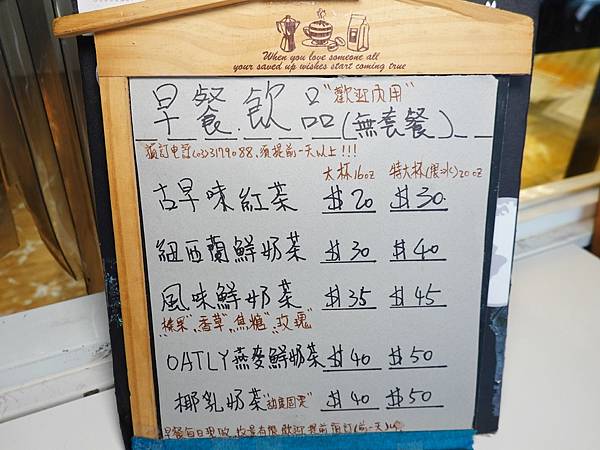 When you love someone all
your saved up wishes start coming true
早餐.飲品"歡迎內用"
(無套餐)
預訂電話(03)3179088,須提前一天以上!!!
大杯16oz 特大杯(限冰)20oz
古早味紅茶 $20 $30
紐西蘭鮮奶茶 $30 $40
風味鮮奶茶 $35 $45
"榛果" "香草" "焦糖" "玫瑰"
OATLY燕麥鮮奶茶 $40 $50
椰乳奶茶 $40 $50
早餐每日現做,數量有限,歡迎提前預訂(前一天)